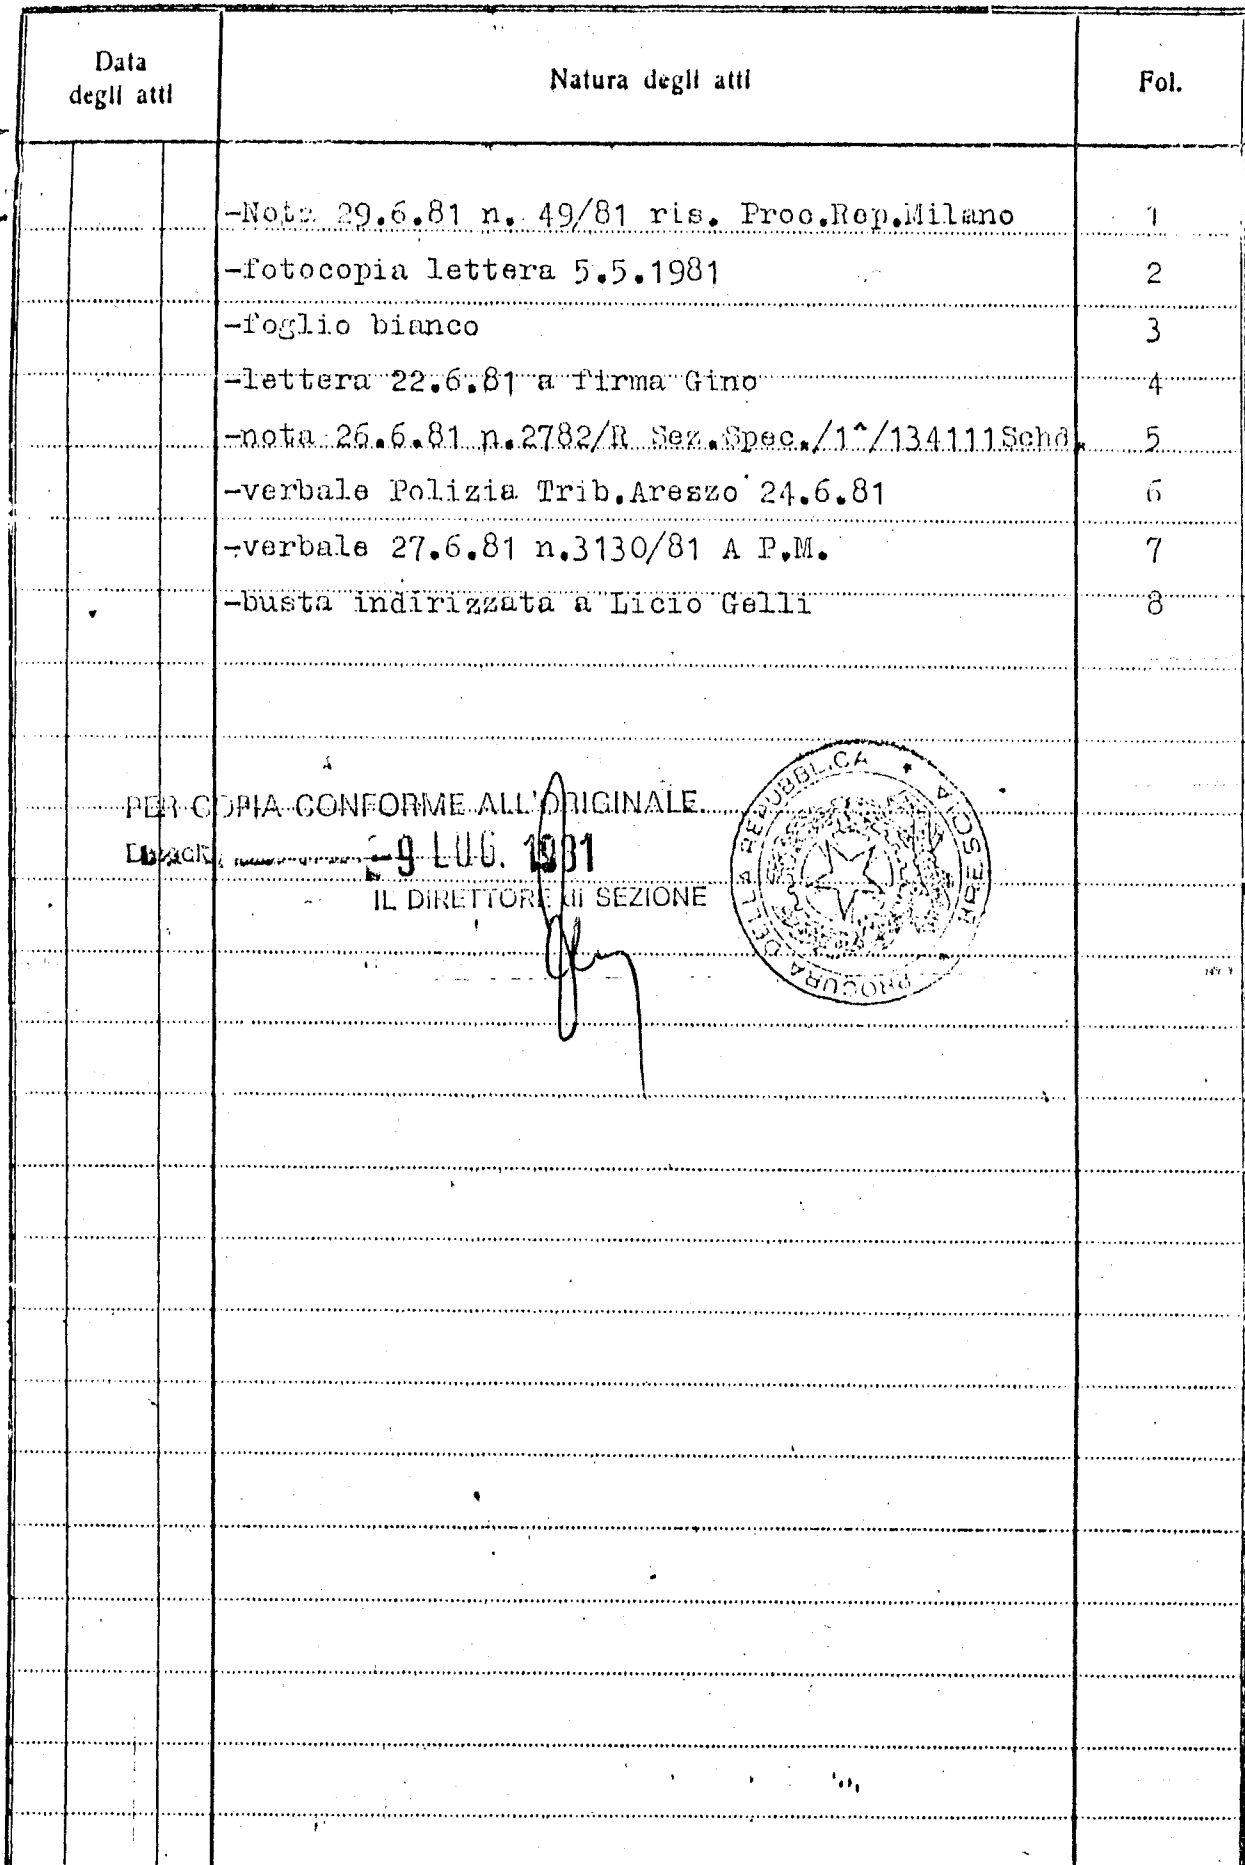 Data
degli atti
Natura degli atti
Fol.
-Nota 29.6.81 n. 49/81 ris. Proc.Rep.Milano 1
-fotocopia lettera 5.5.1981 2
-foglio bianco 3
-lettera 22.6.81 a firma Gino 4
-nota 26.6.81 n.2782/R Sez.Spec./1^/134111Schd. 5
-verbale Polizia Trib.Arezzo 24.6.81 6
-verbale 27.6.81 n.3130/81 A P.M. 7
-busta indirizzata a Licio Gelli 8
PER COPIA CONFORME ALL'ORIGINALE
-9 LUG. 1981
IL DIRETTORE di SEZIONE
PROCURA DELLA REPUBBLICA * BRESCIA